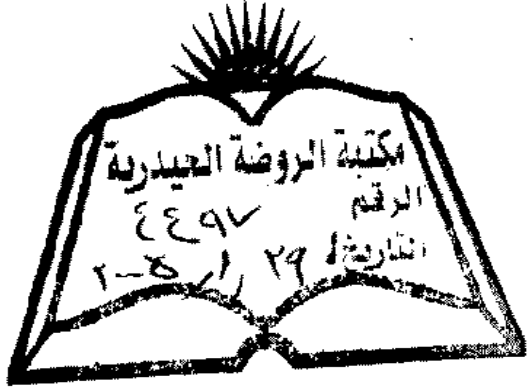 مكتبة الروضة الحيدرية
الرقم ٤٤٩٧
التاريخ ٢٩ / ١ / ٢٠٠٥